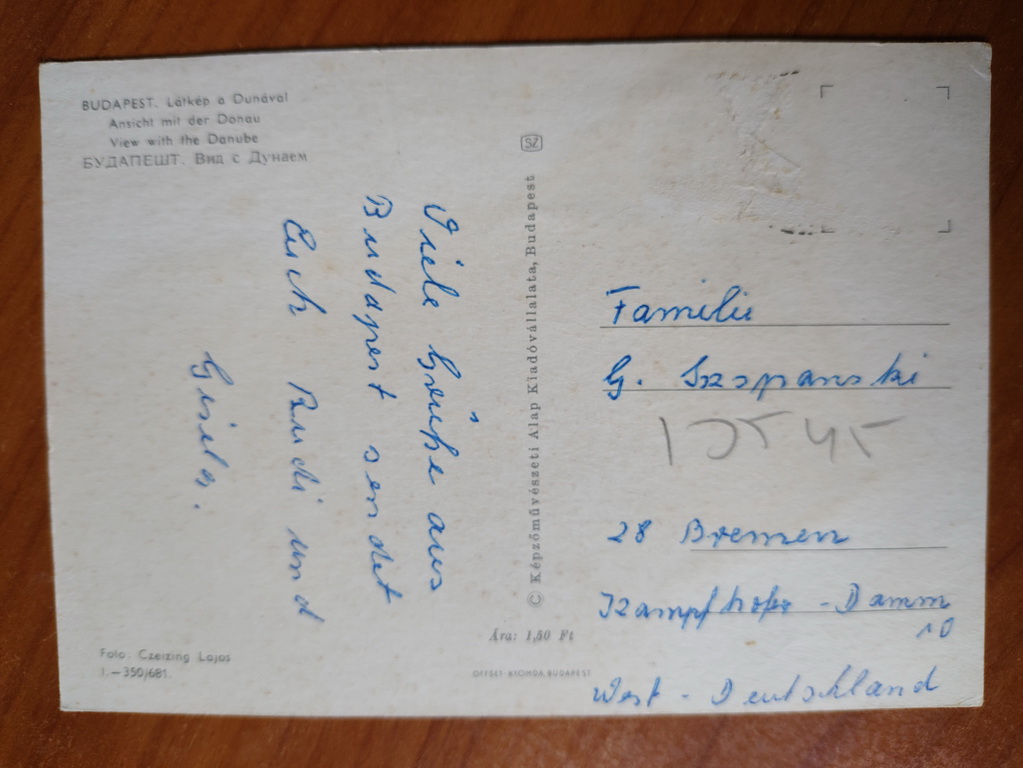 BUDAPEST. Látkép a Dunával
Ansicht mit der Donau
View with the Danube
БУДАПЕШТ. Вид с Дунаем
Viele Grüße aus
Budapest sendet
Euch Rudi und
Gisela.
Foto: Czeizing Lajos
I.—350/681.
SZ
© Képzőművészeti Alap Kiadóvállalata, Budapest
Ára: 1,50 Ft
OFFSET-NYOMDA, BUDAPEST
Familie
G. Szspanski
28 Bremen
Kampfhofer - Damm
10
West - Deutschland